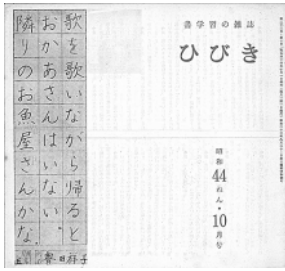 書学習の雑誌
ひびき
昭和
44
ねん・
10
月号
歌を歌いながら帰ると
おかあさんはいない。
隣りのお魚屋さんかな。